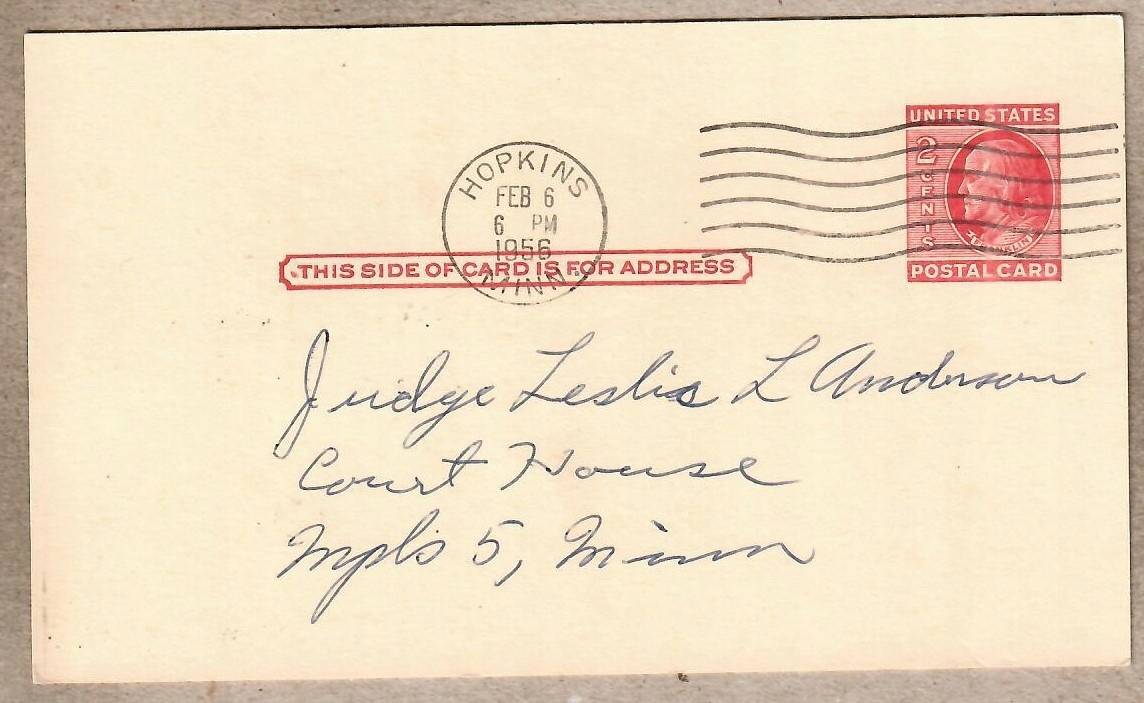 UNITED STATES
2 CENTS
FRANKLIN
POSTAL CARD
HOPKINS
FEB 6
6 PM
1956
MINN.
THIS SIDE OF CARD IS FOR ADDRESS
Judge Leslie L Anderson
Court House
Mpls 5, Minn